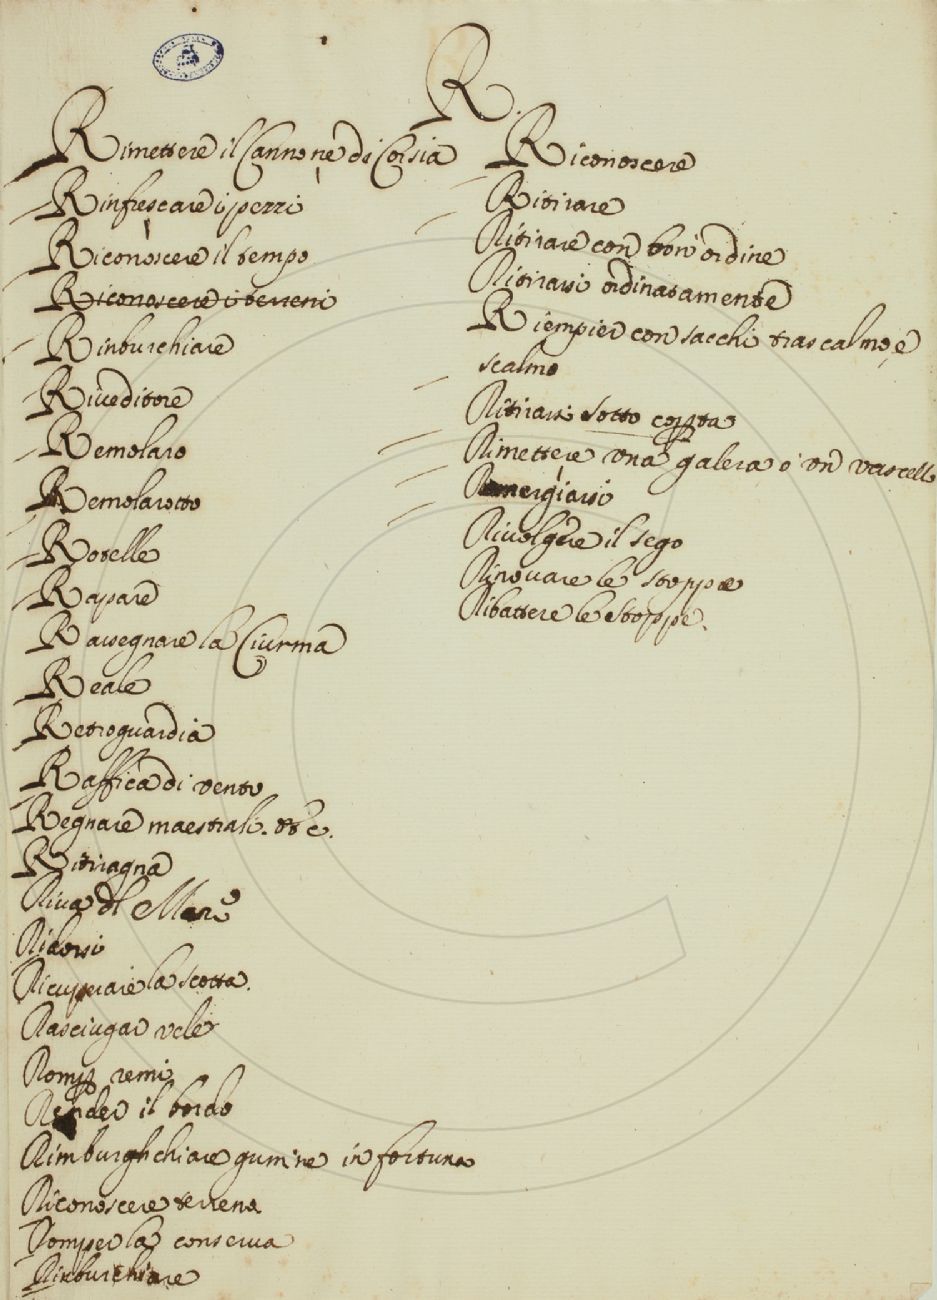 R.
Rimettere il Cannone di Corsia
Rinfrescare i pezzi
Riconoscere il tempo
Riconoscere i terreni
Rinburchiare
Riveditore
Remolaro
Remolarotto
Rotelle
Rapare
Rassegnare la Ciurma
Reale
Retroguardia
Raffica di vento
Regnare maestrali. etc.
Ritiragna
Riva di Mare
Ridossi
Ricuperare la scotta.
Rasciugar vele
Romper remi
Render il bordo
Rimburghchiare gumine in fortuna
Riconoscere terrena
Romper la conserva
Rinburchiare
Riconoscere
Ritirare
Ritirare con bon ordine
Ritirarsi ordinatamente
Riempier con sacchi tra scalmo, e
scalmo
Ritirarsi sotto coperta
Rimettere una galera o un vascello
Rivolgere il sego
Rinovare le stoppe
Ribattere le stoppe.